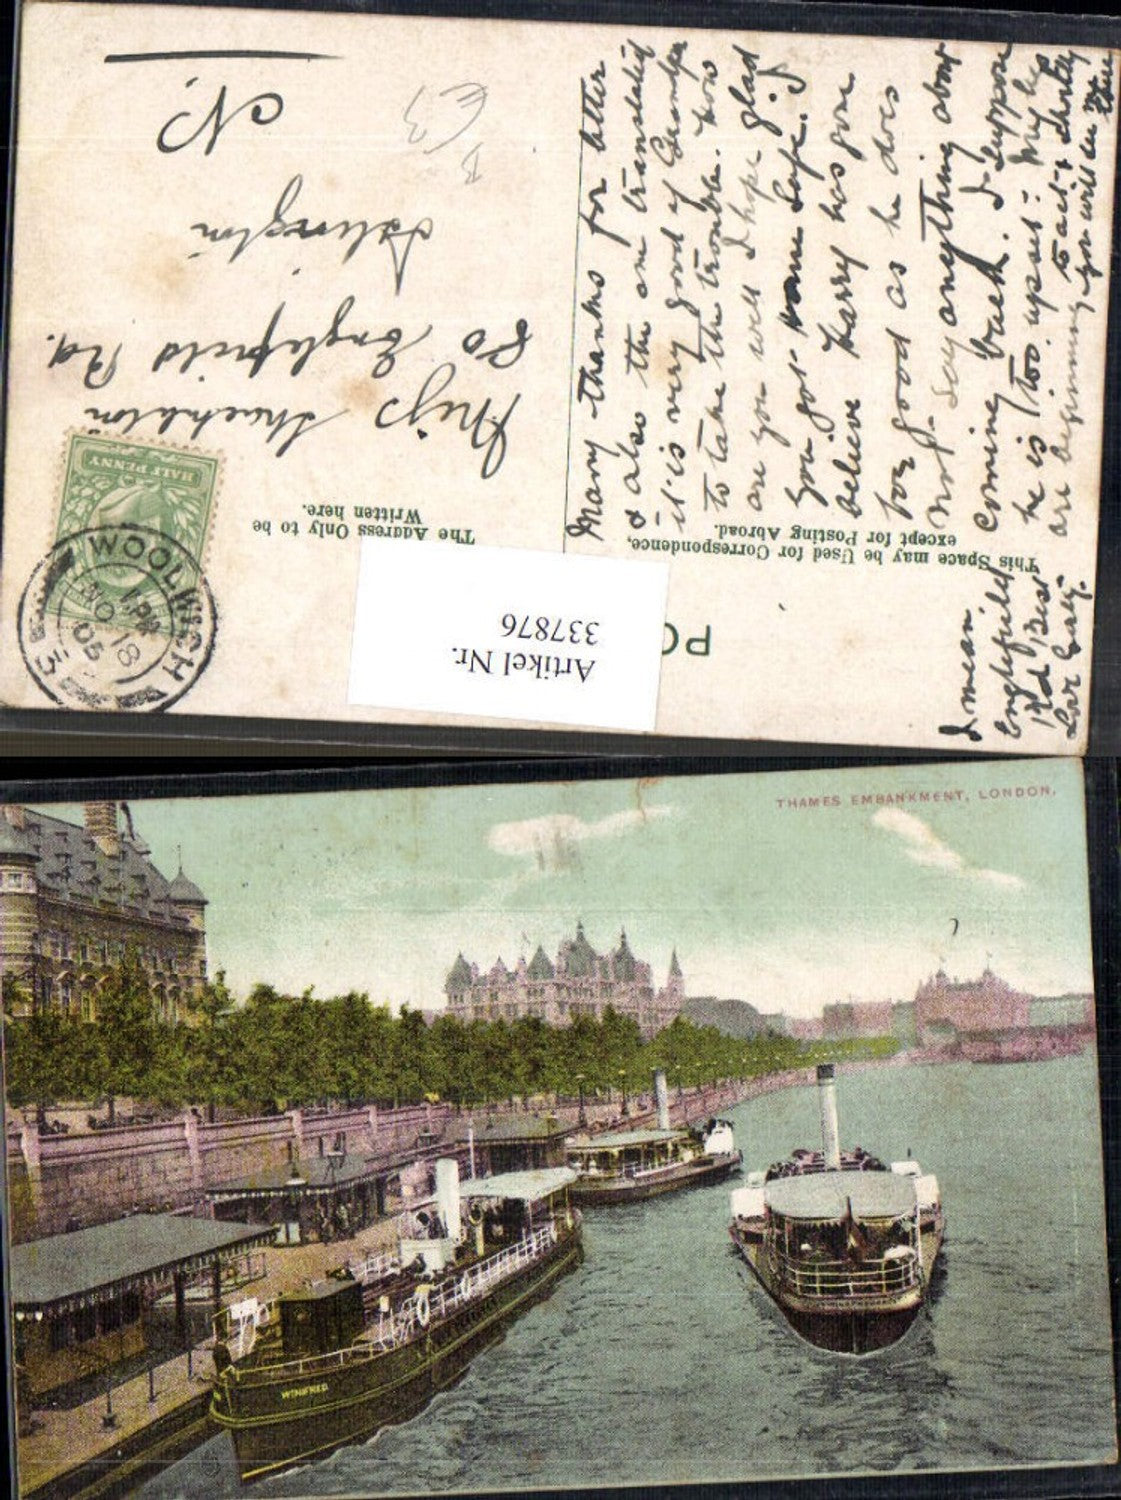 PO
This Space may be Used for Correspondence,
except for Posting Abroad.
The Address Only to be
Written here.
HALF PENNY
WOOLWICH
1 PM
NO 18
05
Artikel Nr.
337876
Miss
80 Englefield Rd.
Islington
N.
B
£3
Many thanks for letter
& also the one translated
it is very good of Grandpa
to take the trouble. How
are you well I hope glad
you got home safe. I
believe Harry has gone
for good as he does
not say anything about
coming back. I suppose
he is too upset. May be
are beginning to act shortly
you will be
I mean
Englefield
Rd Best
Love
THAMES EMBANKMENT, LONDON.
WINIFRED